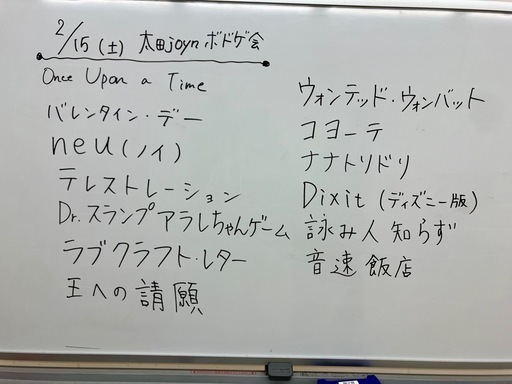 2/15(土) 太田joynボドゲ会
Once Upon a Time
バレンタイン・デー
neu(ノイ)
テレストレーション
Dr.スランプアラレちゃんゲーム
ラブクラフト・レター
王への請願
ウォンテッド・ウォンバット
コヨーテ
ナナトリドリ
Dixit(ディズニー版)
詠み人知らず
音速飯店